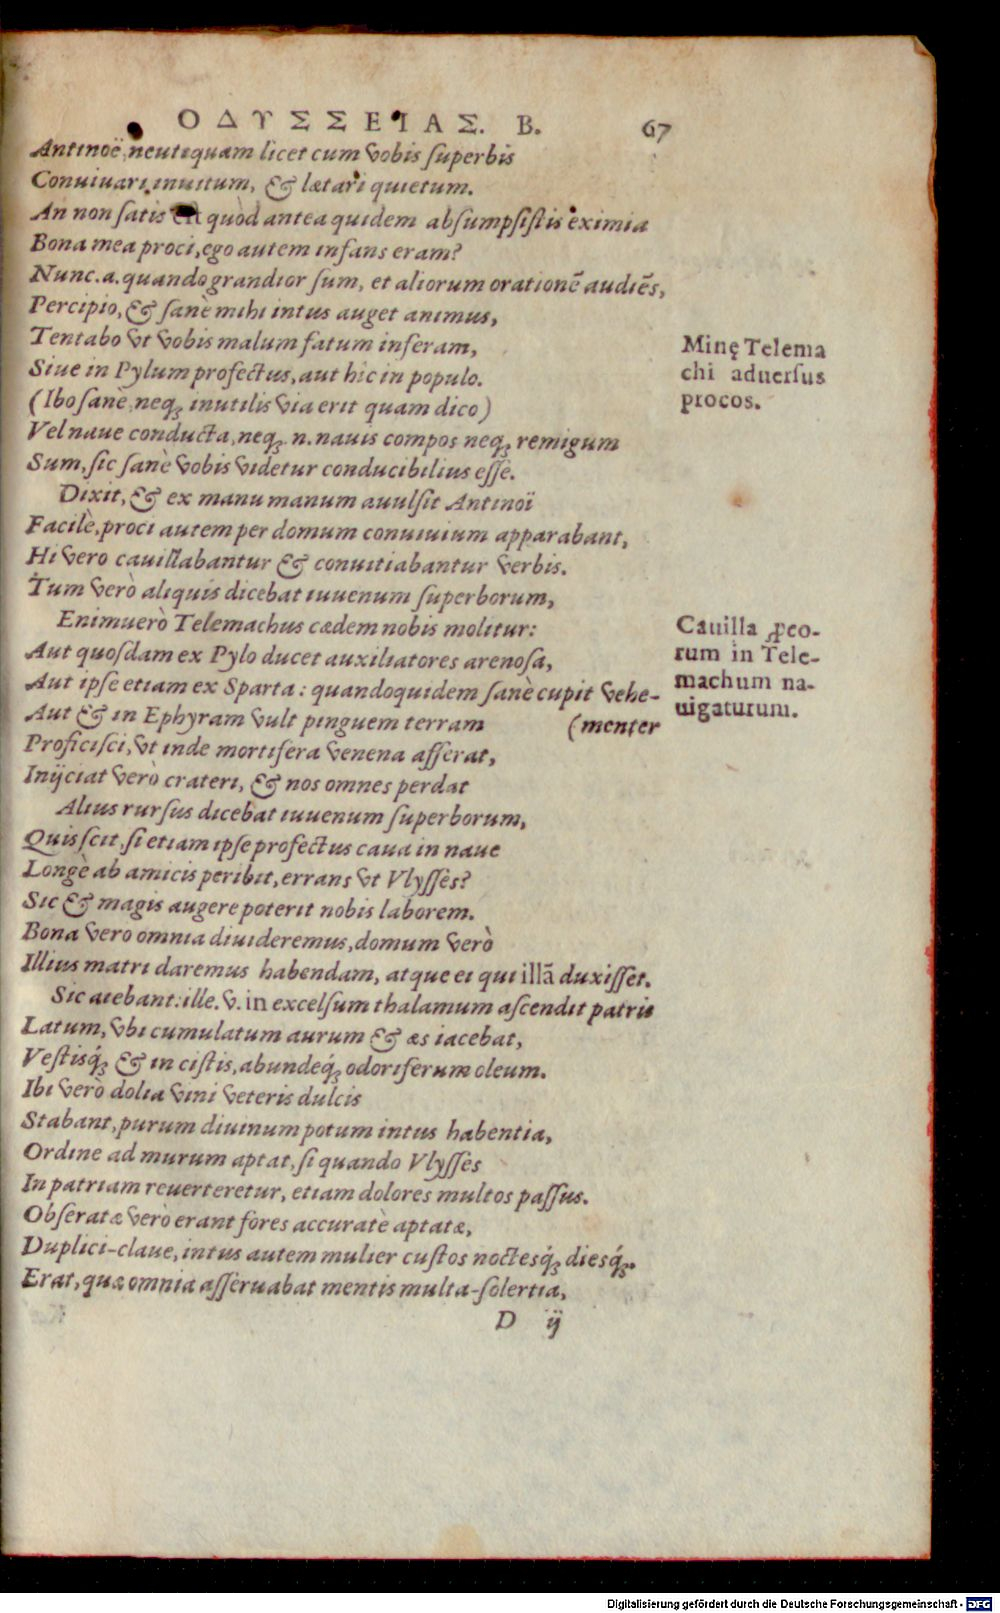 ΟΔΥΣΣΕΙΑΣ. Β. 67
Antinoë, neutiquam licet cum vobis superbis
Conuiuari inuitum, & lætari quietum.
An non satis est quòd antea quidem absumpsistis eximia
Bona mea proci, ego autem infans eram?
Nunc.a. quando grandior sum, et aliorum orationē audiēs,
Percipio, & sanè mihi intus auget animus,
Tentabo vt vobis malum fatum inferam,
Siue in Pylum profectus, aut hîc in populo.
(Ibo sanè, neq; inutilis via erit quam dico)
Vel naue conducta, neq;. n. nauis compos neq; remigum
Sum, sic sanè vobis videtur conducibilius esse.
Minę Telema
chi aduersus
procos.
Dixit, & ex manu manum auulsit Antinoï
Facilè, proci autem per domum conuiuium apparabant,
Hi vero cauillabantur & conuitiabantur verbis.
Tum verò aliquis dicebat iuuenum superborum,
Enimuerò Telemachus cædem nobis molitur:
Aut quosdam ex Pylo ducet auxiliatores arenosa,
Aut ipse etiam ex Sparta: quandoquidem sanè cupit vehe-
Aut & in Ephyram vult pinguem terram (menter
Proficisci, vt inde mortifera venena afferat,
Inijciat verò crateri, & nos omnes perdat
Cauilla ꝓco-
rum in Tele-
machum na-
uigaturum.
Alius rursus dicebat iuuenum superborum,
Quis scit, si etiam ipse profectus caua in naue
Longè ab amicis peribit, errans vt Vlysses?
Sic & magis augere poterit nobis laborem.
Bona vero omnia diuideremus, domum verò
Illius matri daremus habendam, atque ei qui illā duxisset.
Sic aiebant: ille. v. in excelsum thalamum ascendit patris
Latum, vbi cumulatum aurum & æs iacebat,
Vestisq́; & in cistis, abundeq́; odoriferum oleum.
Ibi verò dolia vini veteris dulcis
Stabant, purum diuinum potum intus habentia,
Ordine ad murum aptat, si quando Vlysses
In patriam reuerteretur, etiam dolores multos passus.
Obseratæ verò erant fores accuratè aptatæ,
Duplici-claue, intus autem mulier custos noctesq́; diesq́;.
Erat, quæ omnia asseruabat mentis multa-solertia,
D ij
Digitalisierung gefördert durch die Deutsche Forschungsgemeinschaft - DFG